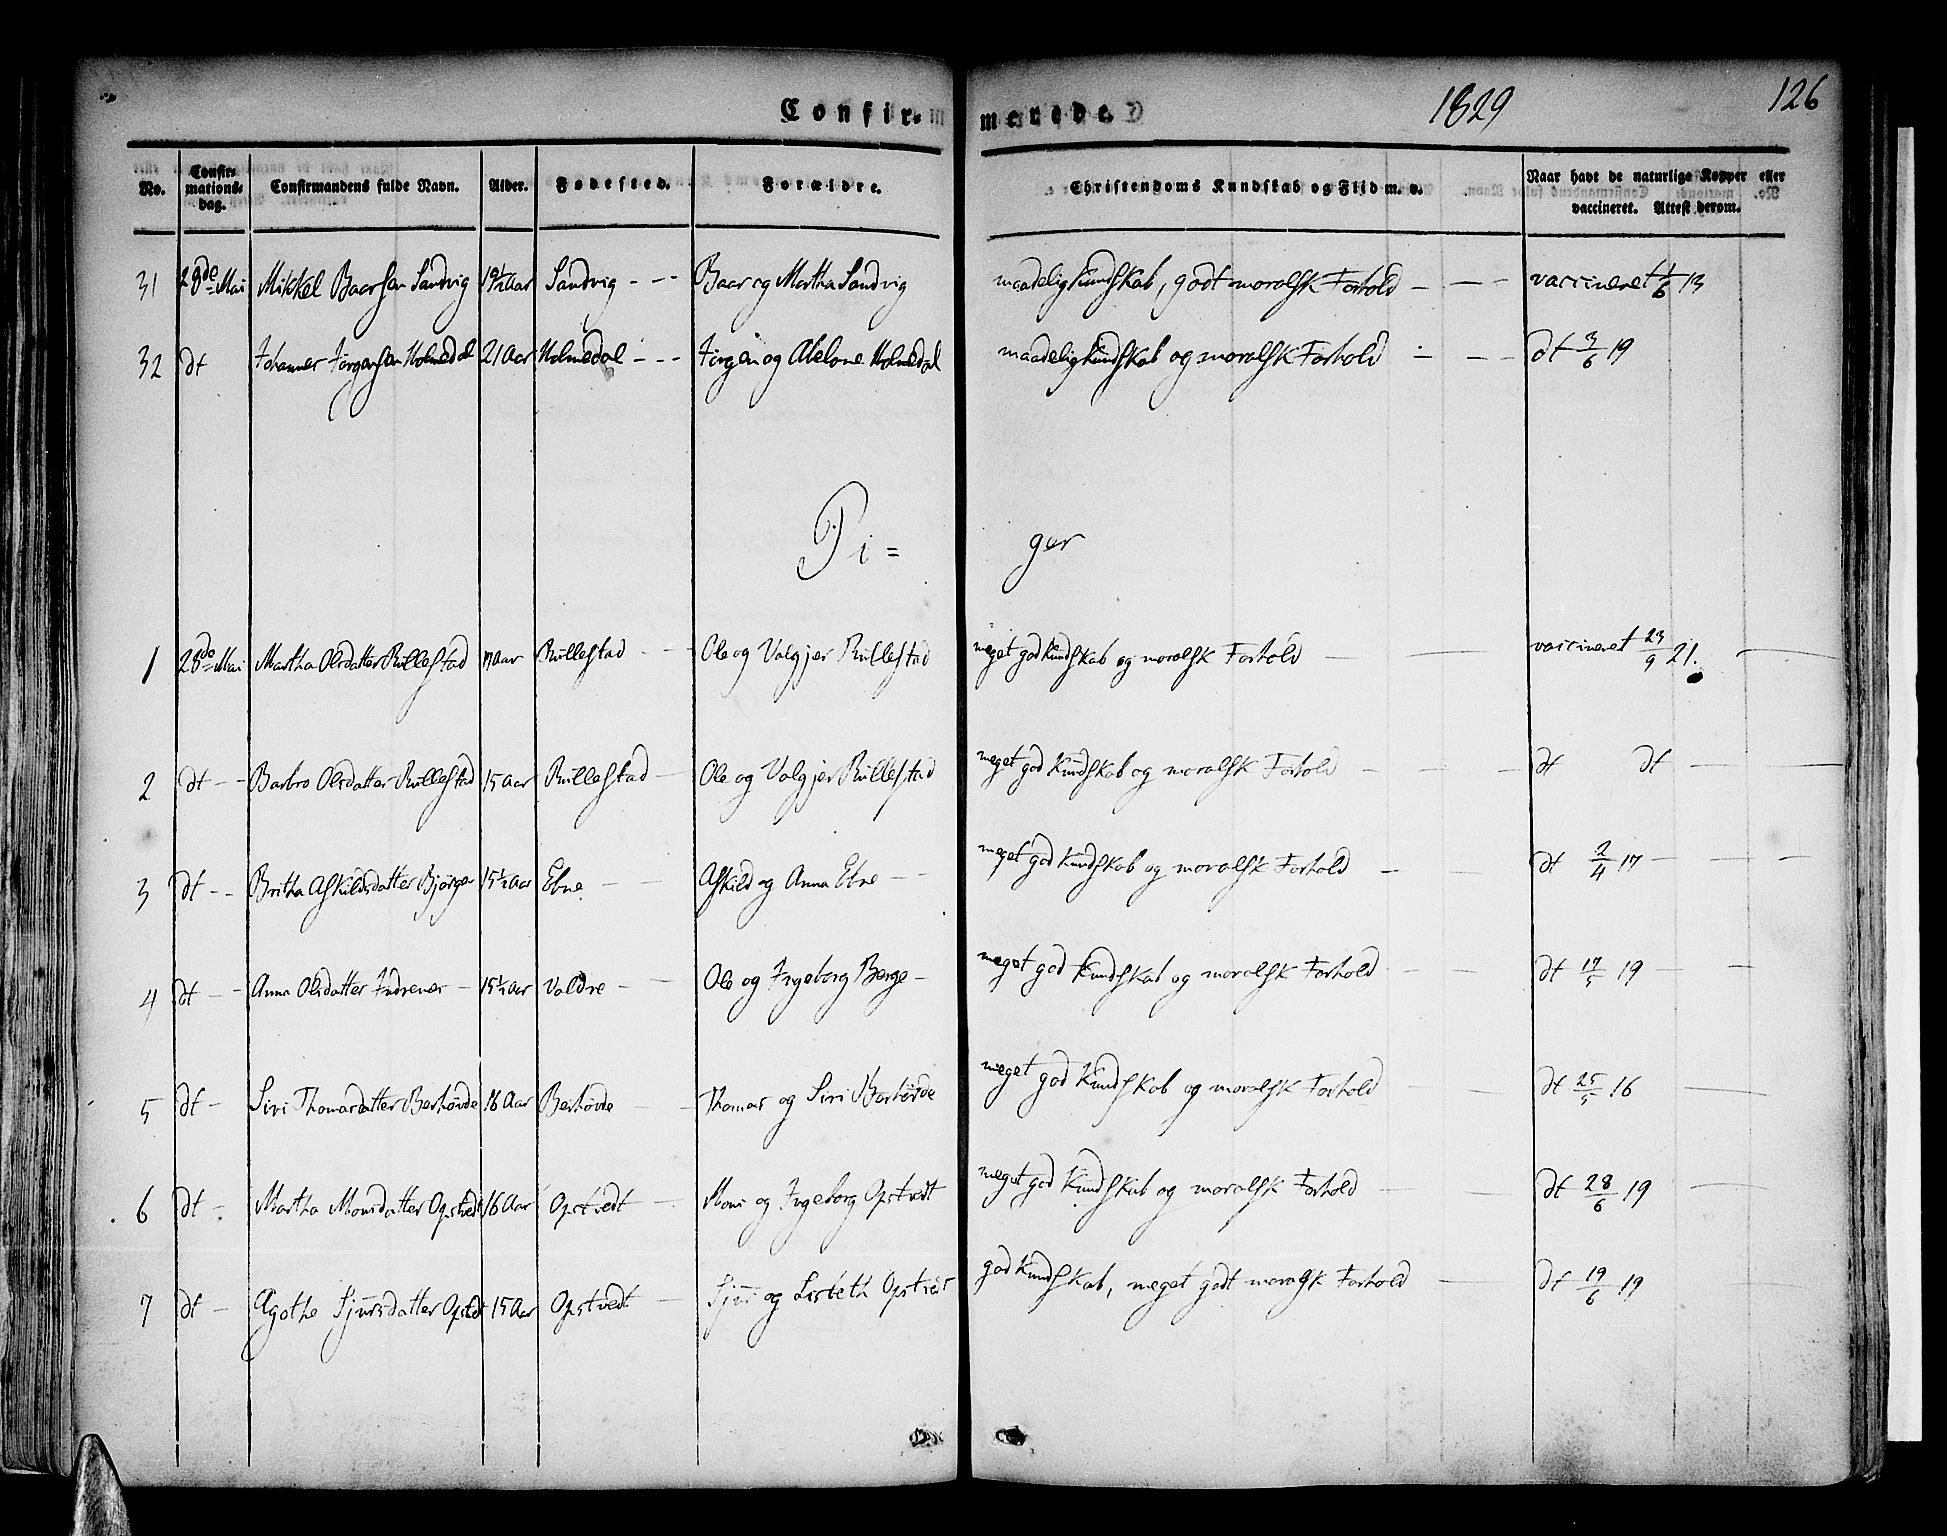 Confir-
merede.
1829
126
No. Confir-mations-dag. Confirmandens fulde Navn. Alder. Fødested. Forældre. Christendoms Kundskab og Flid m. v. Naar havt de naturlige Kopper eller vaccineret. Attest derom.
31 28de Mai Mikkel Baarsen Sandvig 19½ Aar Sandvig - - Baar og Martha Sandvig maadelig Kundskab, godt moralsk Forhold - - - vaccineret 1/6 13
32 dt Johannes Jörgensen Holmedal 21 Aar Holmedal - - - Jörgen og Abelone Holmedal maadelig Kundskab og moralsk Forhold - - - dt 3/6 19
Pi=
ger
1 28de Mai Martha Olsdatter Rullestad 17 Aar Rullestad - - Ole og Valgjer Rullestad meget god Kundskab og moralsk Forhold - - vaccineret 23/9 21.
2 dt - - Barbro Olsdatter Rullestad 15 Aar Rullestad - Ole og Valgjer Rullestad meget god Kundskab og moralsk Forhold - - - dt dt
3 dt - - Britha Askildsdatter Bjørgen 15½ Aar Ebne - - Askild og Anna Ebne - - meget god Kundskab og moralsk Forhold - - dt 2/4 17
4 dt - - Anna Olsdatter - 15½ Aar Valdre - - Ole og Ingeborg Berge - meget god Kundskab og moralsk Forhold - - dt 17/5 19
5 dt - Siri Thomasdatter Berhövde 16 Aar Berhövde - - Thomas og Siri Berhövde meget god Kundskab og moralsk Forhold - - dt 25/5 16
6 dt - Martha Monsdatter Opstvedt 16 Aar Opstvedt - Mons og Ingeborg Opstvedt meget god Kundskab og moralsk Forhold - - dt 28/6 19
7 dt - Agothe Sjursdatter Opstvedt 15 Aar Opstvedt - Sjur og Lisbeth Opstvedt god Kundskab, meget godt moralsk Forhold - - dt 19/6 19